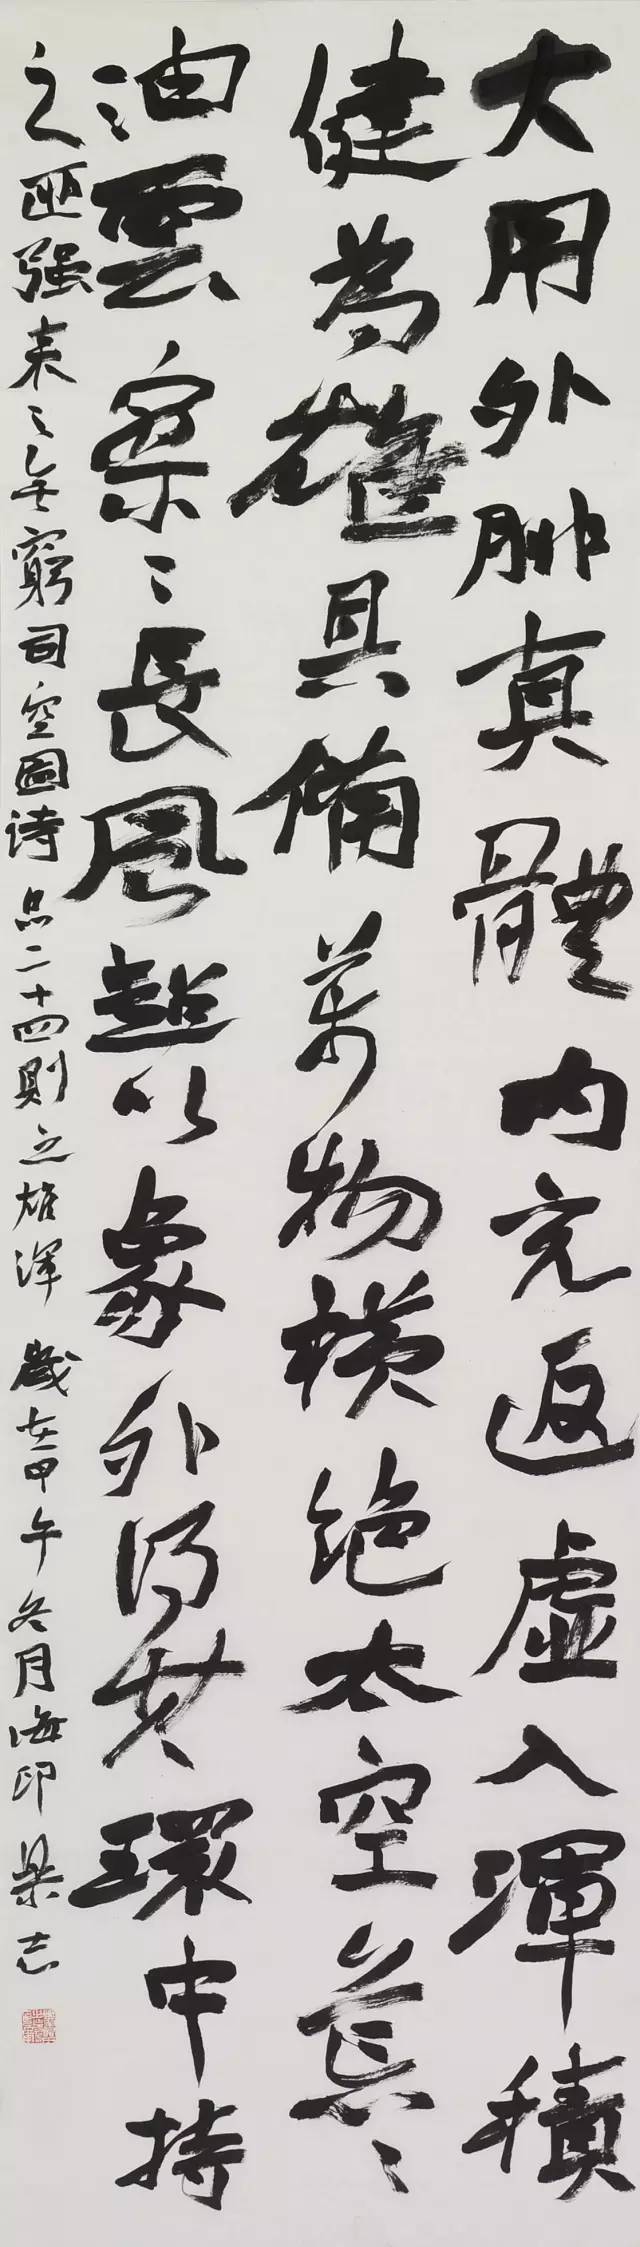 大用外腓真體内充返虚入渾積
健為雄具備萬物横絶太空荒〻
油雲寥〻長風超以象外得其環中持
之匪强来之無窮司空圖诗品二十四則之雄渾歲在甲午冬月海印梁志